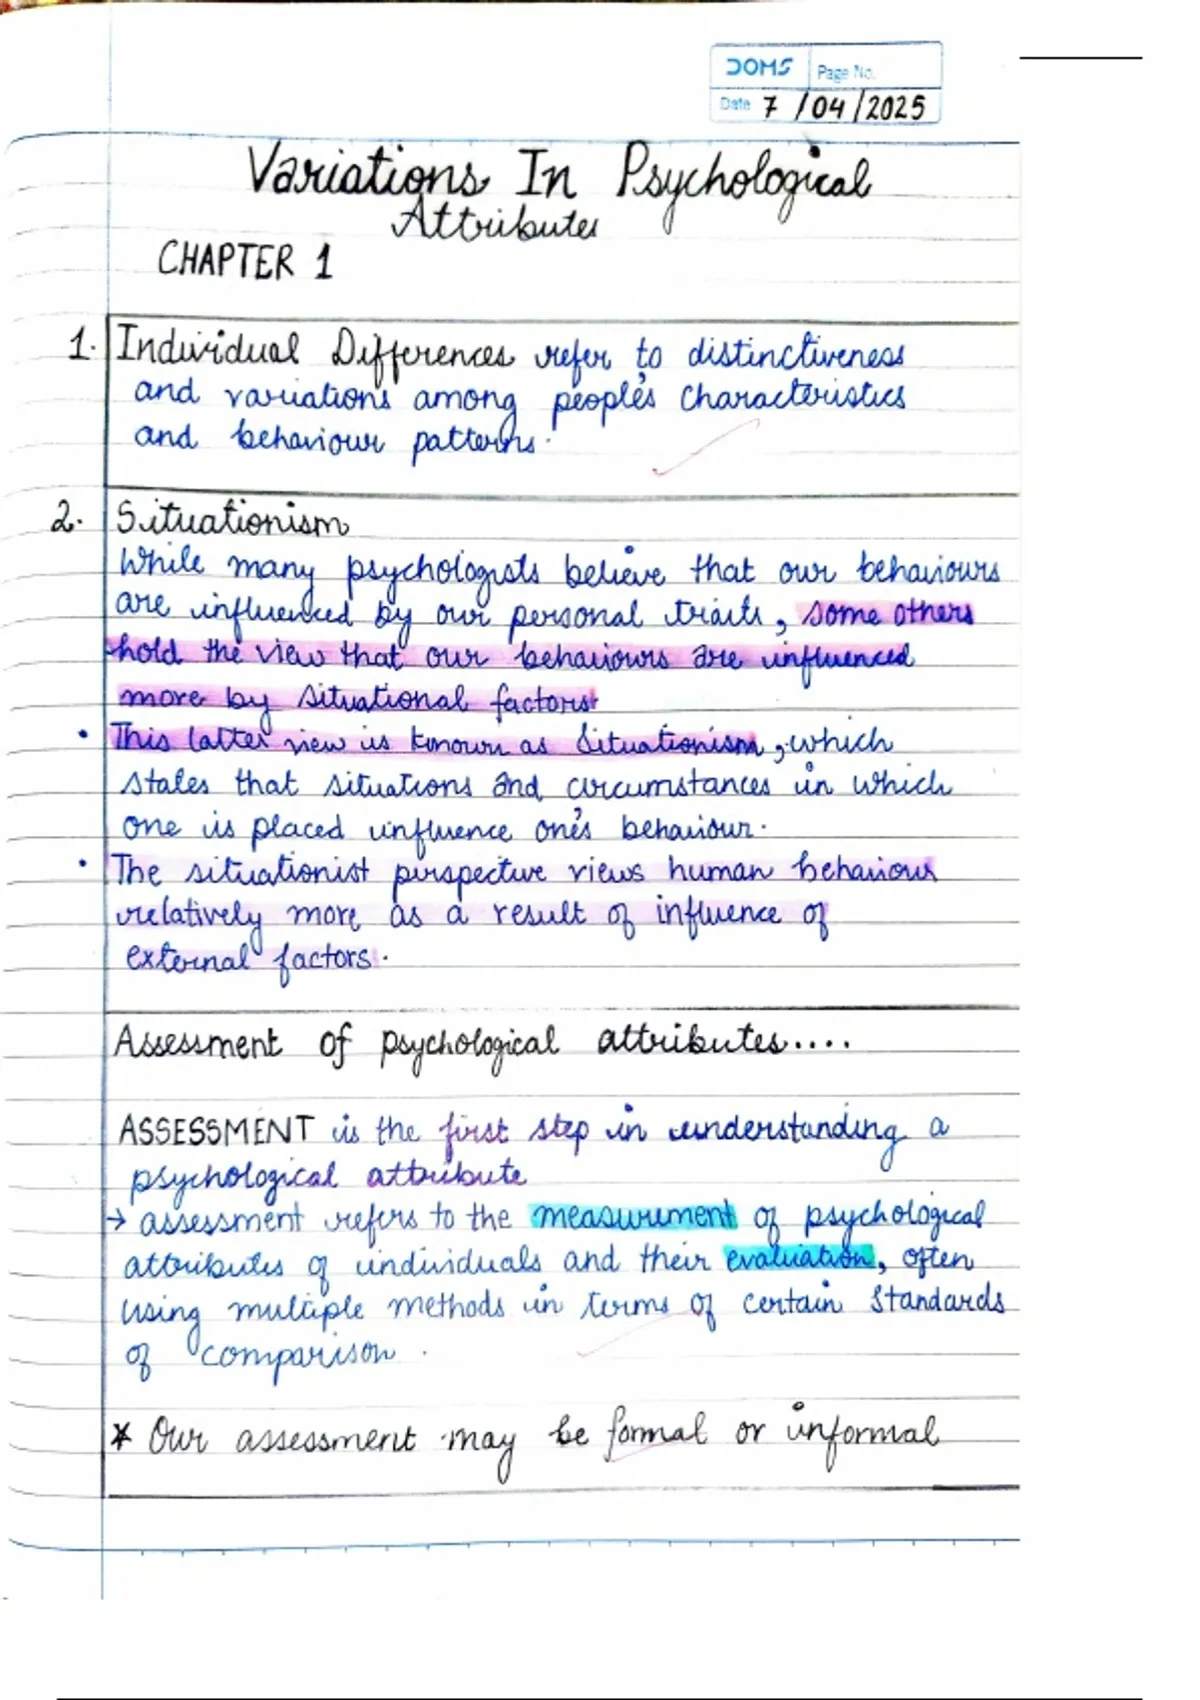 DOMS Page No.
Date 7 /04/2025
Variations In Psychological
Attributes
CHAPTER 1
1. Individual Differences refer to distinctiveness
and variations among people's characteristics
and behaviour patterns.
2. Situationism
While many psychologists believe that our behaviours
are influenced by our personal traits, some others
hold the view that our behaviours are influenced
more by situational factors
• This latter view is known as Situationism, which
states that situations and circumstances in which
one is placed influence one's behaviour.
• The situationist perspective views human behaviour
relatively more as a result of influence of
external factors.
Assessment of psychological attributes....
ASSESSMENT is the first step in understanding a
psychological attribute
→ assessment refers to the measurement of psychological
attributes of individuals and their evaluation, often
using multiple methods in terms of certain standards
of comparison.
* Our assessment may be formal or informal